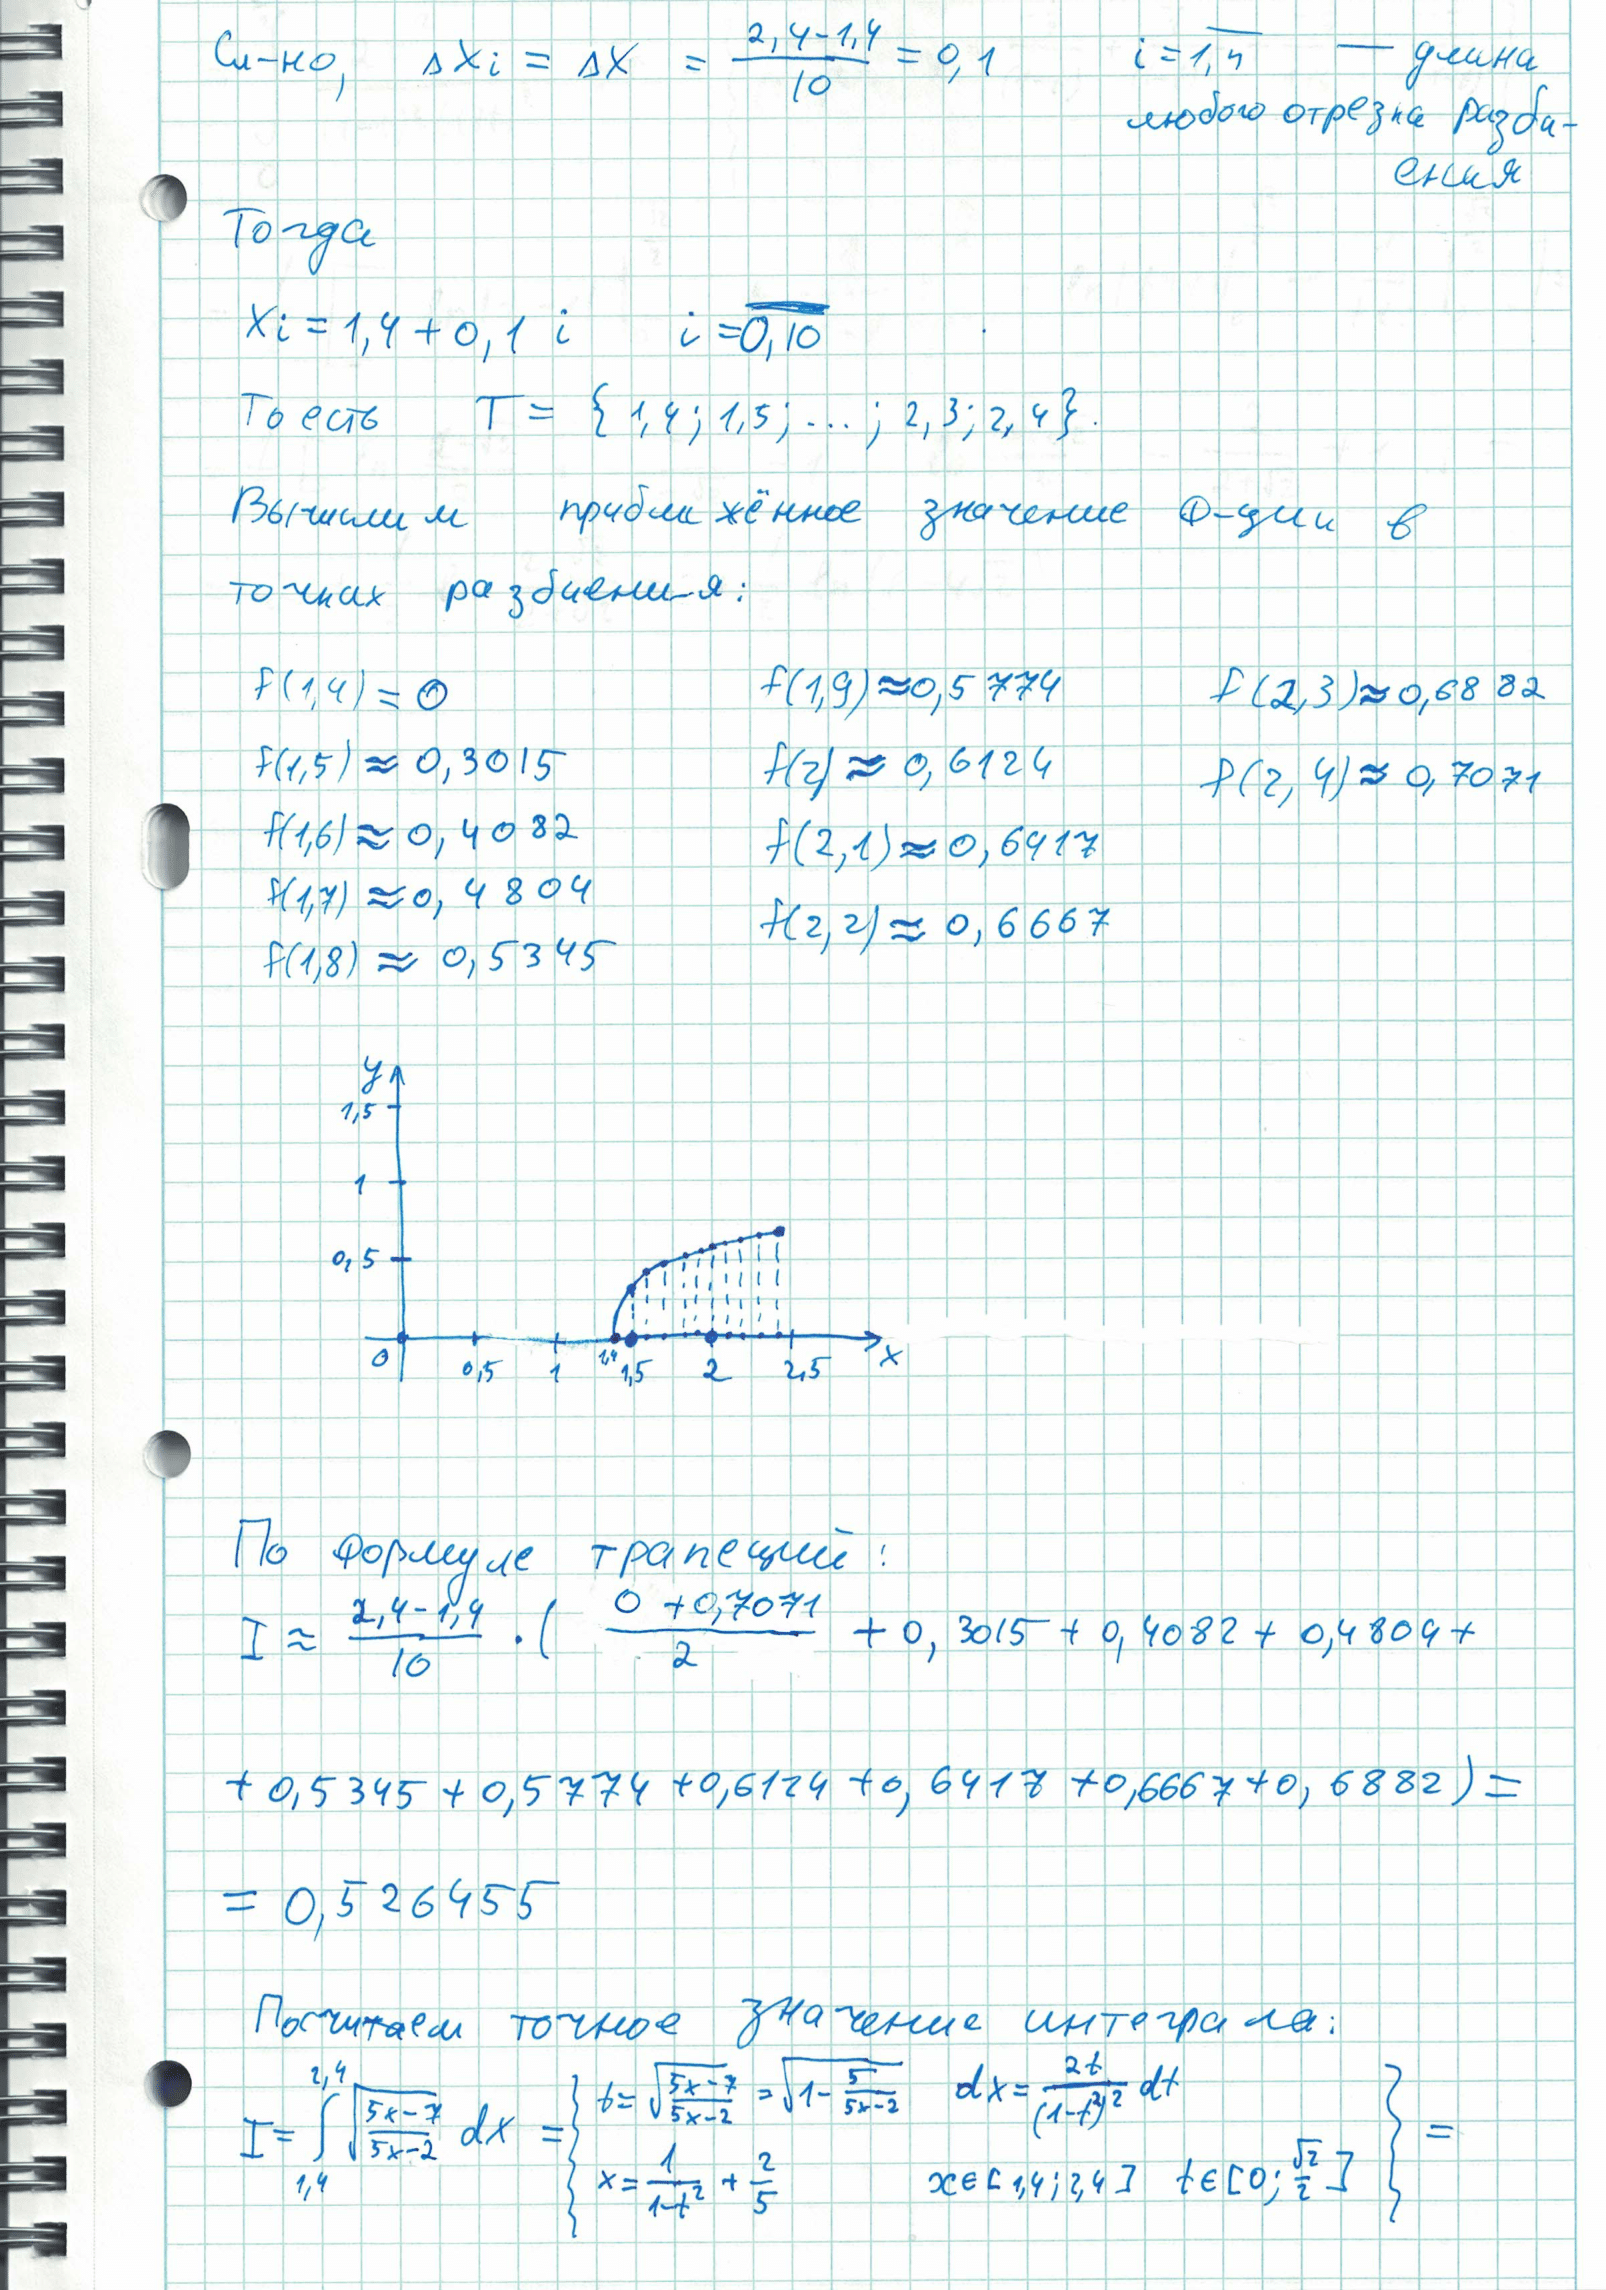 Сл-но, Δxᵢ = Δx = (2,4-1,4)/10 = 0,1 i = 1,n — длина
любого отрезка разби-
ения
Тогда
xᵢ = 1,4 + 0,1 i i = 0,10
То есть T = {1,4; 1,5; ...; 2,3; 2,4}.
Вычислим приближённое значение ф-ции в
точках разбиения:
f(1,4) = 0
f(1,5) ≈ 0,3015
f(1,6) ≈ 0,4082
f(1,7) ≈ 0,4804
f(1,8) ≈ 0,5345
f(1,9) ≈ 0,5774
f(2) ≈ 0,6124
f(2,1) ≈ 0,6417
f(2,2) ≈ 0,6667
f(2,3) ≈ 0,6882
f(2,4) ≈ 0,7071
y
1,5
1
0,5
0 0,5 1 1,4 1,5 2 2,5 x
По формуле трапеций:
I ≈ (2,4-1,4)/10 · ( (0 + 0,7071)/2 + 0,3015 + 0,4082 + 0,4804 +
+ 0,5345 + 0,5774 + 0,6124 + 0,6417 + 0,6667 + 0,6882) =
= 0,526455
Посчитаем точное значение интеграла:
I = ∫_{1,4}^{2,4} √((5x-7)/(5x-2)) dx = { t = √((5x-7)/(5x-2)) = √(1 - 5/(5x-2)) dx = 2t/(1-t²)² dt
x = 1/(1-t²) + 2/5 x ∈ [1,4; 2,4] t ∈ [0; √2/2] } =